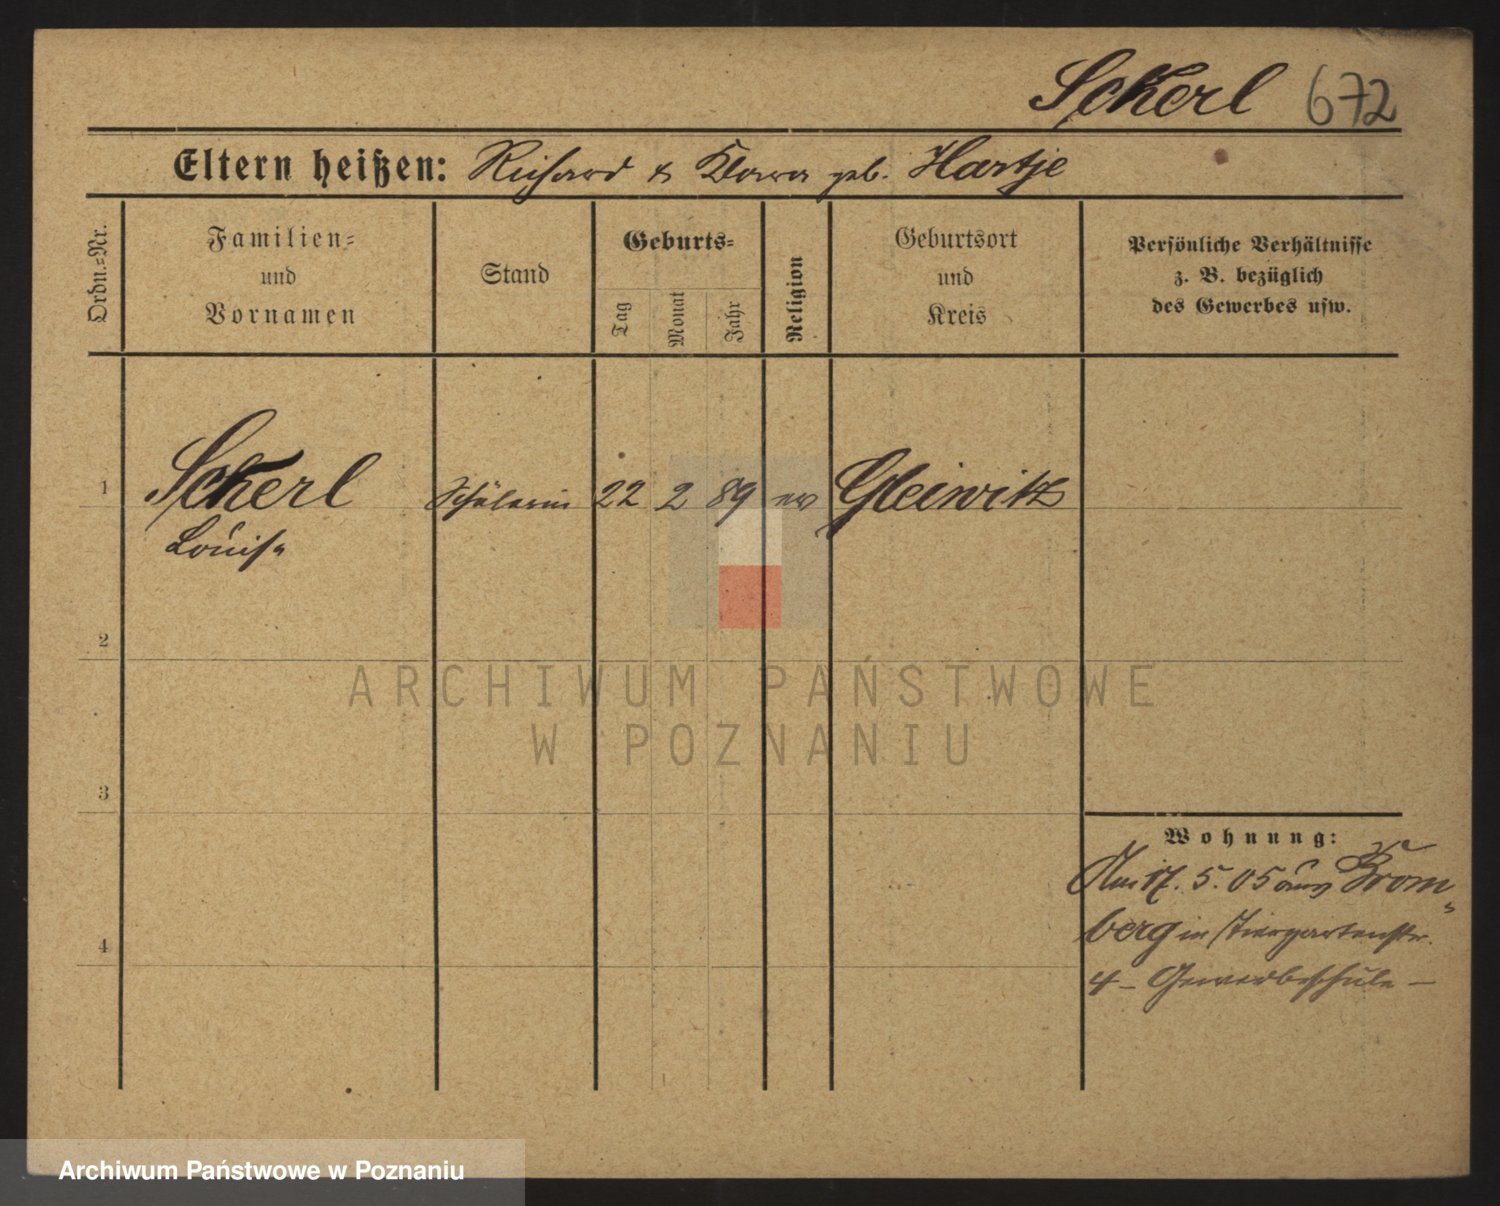 Sckerl 672
Eltern heißen: Richard & Klara geb. Hartje
Ordn.-Nr.
Familien-
und
Vornamen
Stand
Geburts-
Tag
Monat
Jahr
Religion
Geburtsort
und
Kreis
Persönliche Verhältnisse
z. B. bezüglich
des Gewerbes usw.
1 Sckerl Schülerin 22 2 89 ev Gleiwitz
Louise
2
ARCHIWUM PAŃSTWOWE
W POZNANIU
3
Wohnung:
Am 17. 5. 05 aus Brom-
4
berg in Tiergartenstr.
4 – Gewerbeschule –
Archiwum Państwowe w Poznaniu